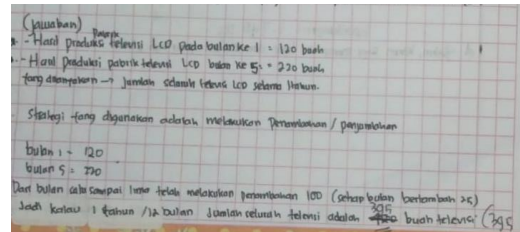 (Jawaban)
- Hasil produksi Pabrik televisi LCD pada bulan ke 1 = 120 buah
- Hasil produksi pabrik televisi LCD bulan ke 5 = 220 buah
yang ditanyakan → Jumlah seluruh televisi LCD selama 1 tahun.
Strategi yang digunakan adalah melakukan Penambahan / penjumlahan
bulan 1 = 120
bulan 5 = 220
Dari bulan satu sampai lima telah melakukan penambahan 100 (setiap bulan bertambah 25)
Jadi kalau 1 tahun /12 bulan Jumlah seluruh televisi adalah 395 buah televisi (395